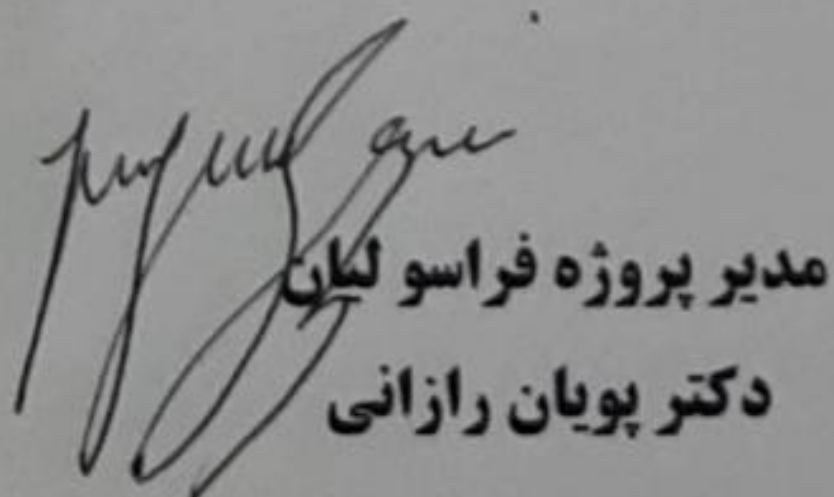 مدیر پروژه فراسو لیان
دکتر پویان رازانی